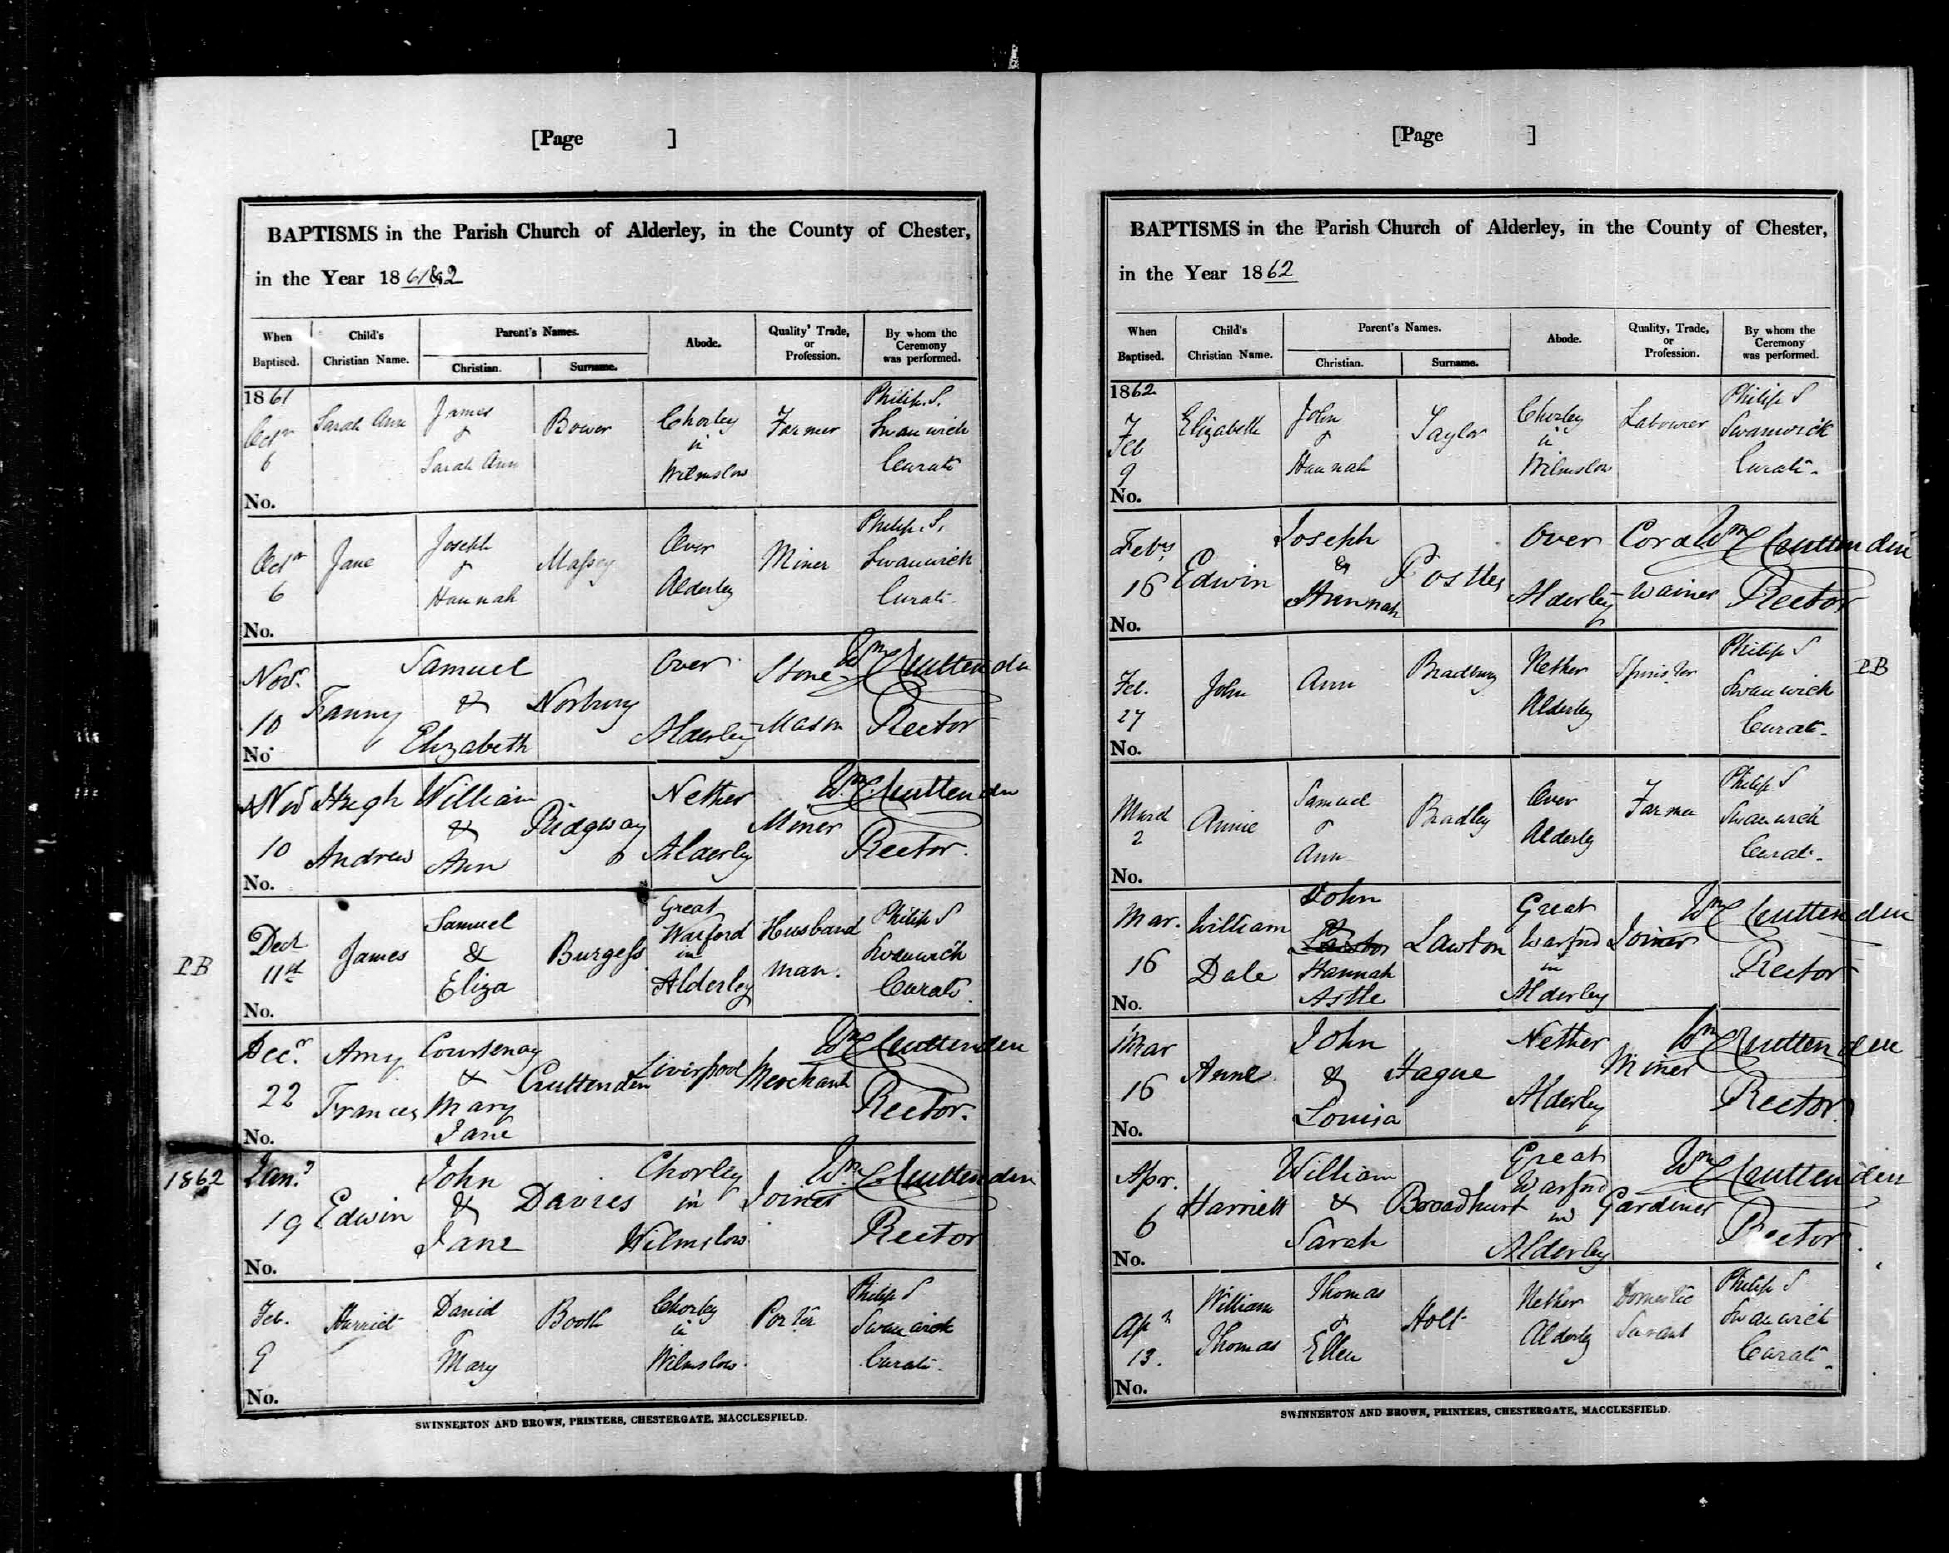 [Page ]
BAPTISMS in the Parish Church of Alderley, in the County of Chester,
in the Year 1861&2
When Baptised. Child's Christian Name. Parent's Names. Christian. Surname. Abode. Quality, Trade, or Profession. By whom the Ceremony was performed.
1861 Octr 6 No. Sarah Ann James & Sarah Ann Bower Chorley in Wilmslow Farmer Philip. S. Swanwick Curate
Octr 6 No. Jane Joseph & Hannah Massey Over Alderley Miner Philip. S. Swanwick Curate
Novr. 10 No. Fanny Samuel & Elizabeth Norbury Over Alderley Stone Mason Wm Cruttenden Rector
Novr 10 No. Hugh Andrew William & Ann Ridgway Nether Alderley Miner Wm Cruttenden Rector.
PB Decr 11st No. James Samuel & Eliza Burgess Great Warford in Alderley Husband man. Philip S Swanwick Curate.
Decr. 22 No. Amy Frances Courtenay & Mary Jane Cruttenden Liverpool Merchant Wm Cruttenden Rector.
1862 Jany 19 No. Edwin John & Jane Davies Chorley in Wilmslow Joiner Wm Cruttenden Rector
Feb. 9 No. Harriet David Mary Booth Chorley in Wilmslow. Porter Philip S Swanwick Curate.
SWINNERTON AND BROWN, PRINTERS, CHESTERGATE, MACCLESFIELD.
[Page ]
BAPTISMS in the Parish Church of Alderley, in the County of Chester,
in the Year 1862
When Baptised. Child's Christian Name. Parent's Names. Christian. Surname. Abode. Quality, Trade, or Profession. By whom the Ceremony was performed.
1862 Feb 9 No. Elizabeth John & Hannah Taylor Chorley in Wilmslow Labourer Philip S Swanwick Curate.
Feby 16 No. Edwin Joseph & Hannah Postles Over Alderley Cord wainer Wm Cruttenden Rector
Feb. 27 No. John Ann Bradbury Nether Alderley Spinster Philip S Swanwick Curate. PB
March 2 No. Annie Samuel & Ann Bradley Over Alderley Farmer Philip S Swanwick Curate.
Mar. 16 No. William Dale John & Hannah Astle Lawton Great Warford in Alderley Joiner Wm Cruttenden Rector
Mar 16 No. Anne John & Louisa Hague Nether Alderley Miner Wm Cruttenden Rector
Apr. 6 No. Harriett William & Sarah Broadhurst Great Warford in Alderley Gardiner Wm Cruttenden Rector.
Apl 13. No. William Thomas Thomas & Ellen Holt Nether Alderley Domestic Servant Philip S Swanwick Curate.
SWINNERTON AND BROWN, PRINTERS, CHESTERGATE, MACCLESFIELD.